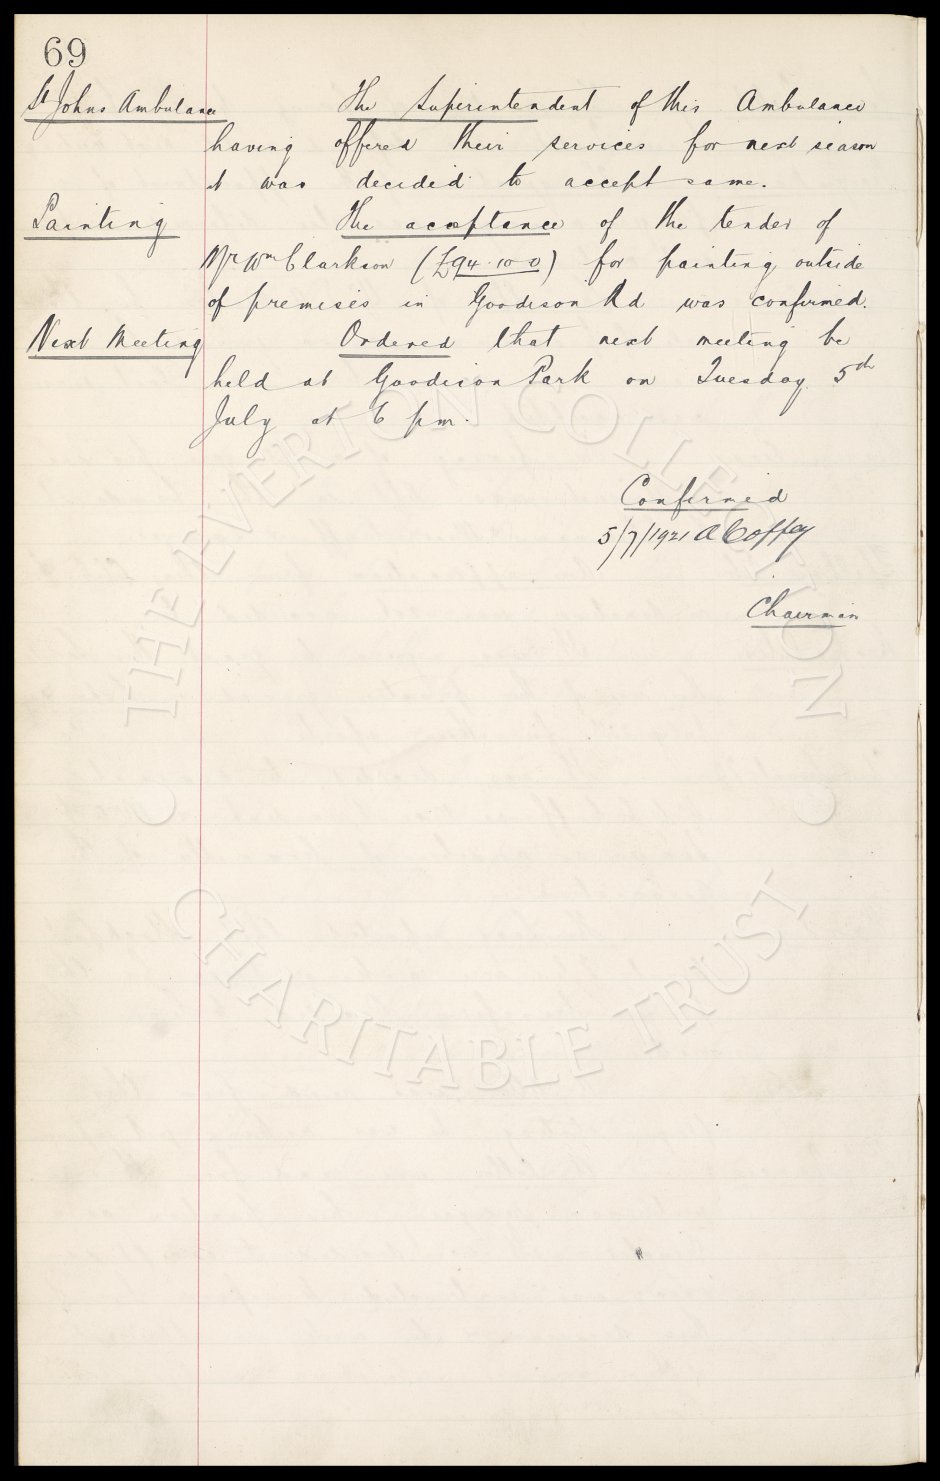 69
St Johns Ambulance The Superintendent of this Ambulance
having offered their services for next season
it was decided to accept same.
Painting The acceptance of the tender of
Mr Wm Clarkson (£94.10-0) for painting outside
of premises in Goodison Rd was confirmed.
Next Meeting Ordered that next meeting be
held at Goodison Park on Tuesday 5th
July at 6 pm.
Confirmed
5/7/1921 A Coffey
Chairman
© THE EVERTON COLLECTION ©
CHARITABLE TRUST